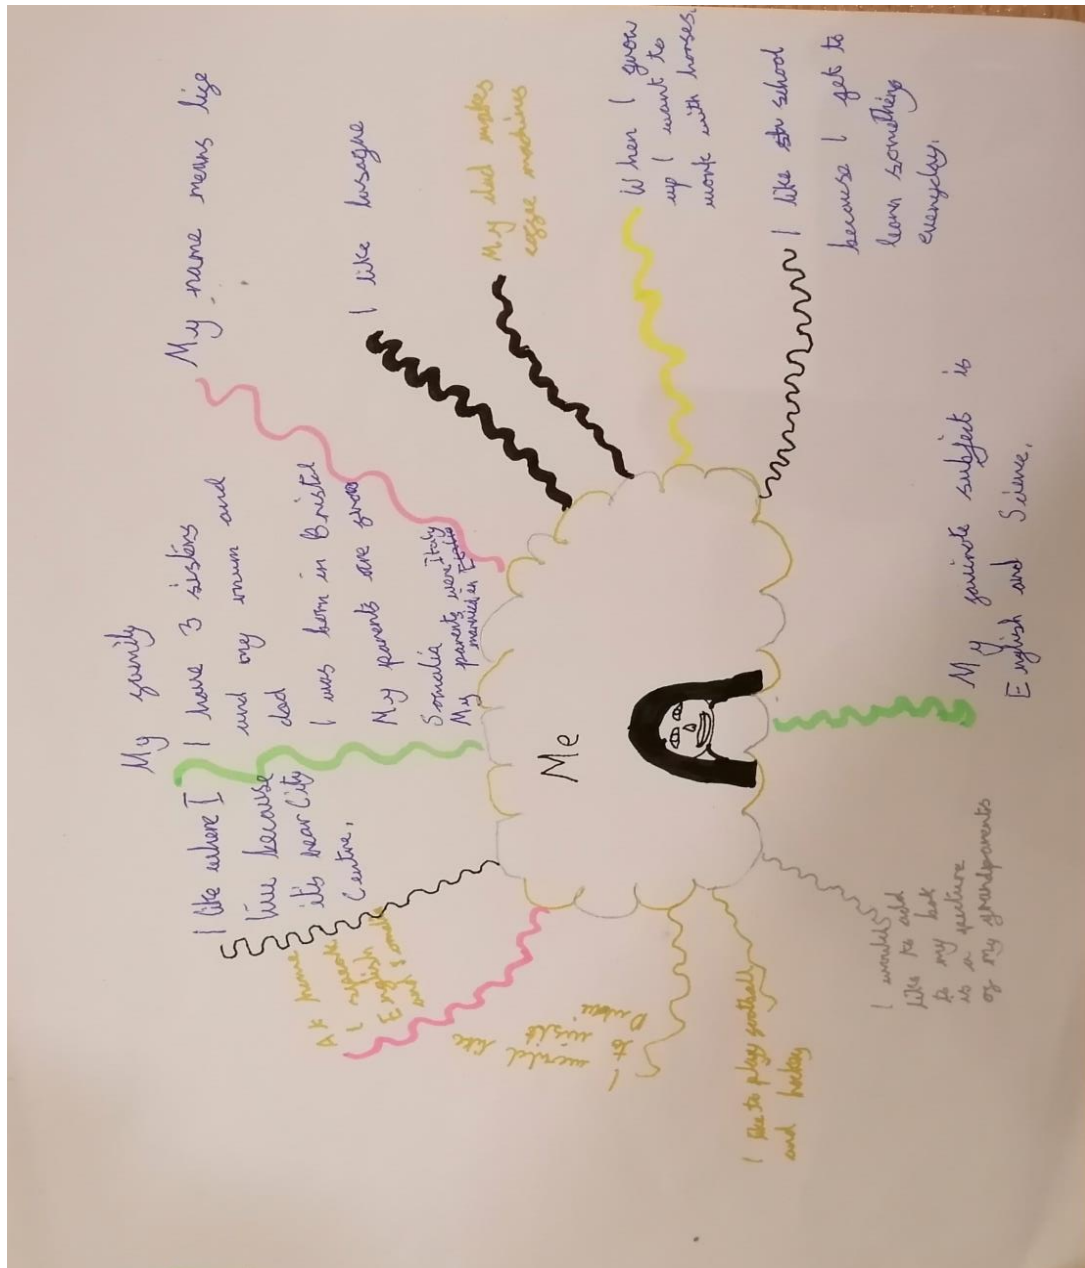 Me
My family
I have 3 sisters
and my mum and
dad
I was born in Bristol
My parents are from
Somalia
My parents were Italy
married in
My name means life
I like lasagne
My dad makes
coffee machines
When I grow
up I want to
work with horses.
I like school
because I get to
learn something
everyday.
My favirote subject is
English and Science.
I would
like to add
to my box
is a picture
of my grandparents
I like to play football
and hockey
I would like
to visit
Dubai
At home
I speak
English
and Somali
I like where I
live because
it's near City
Centre.